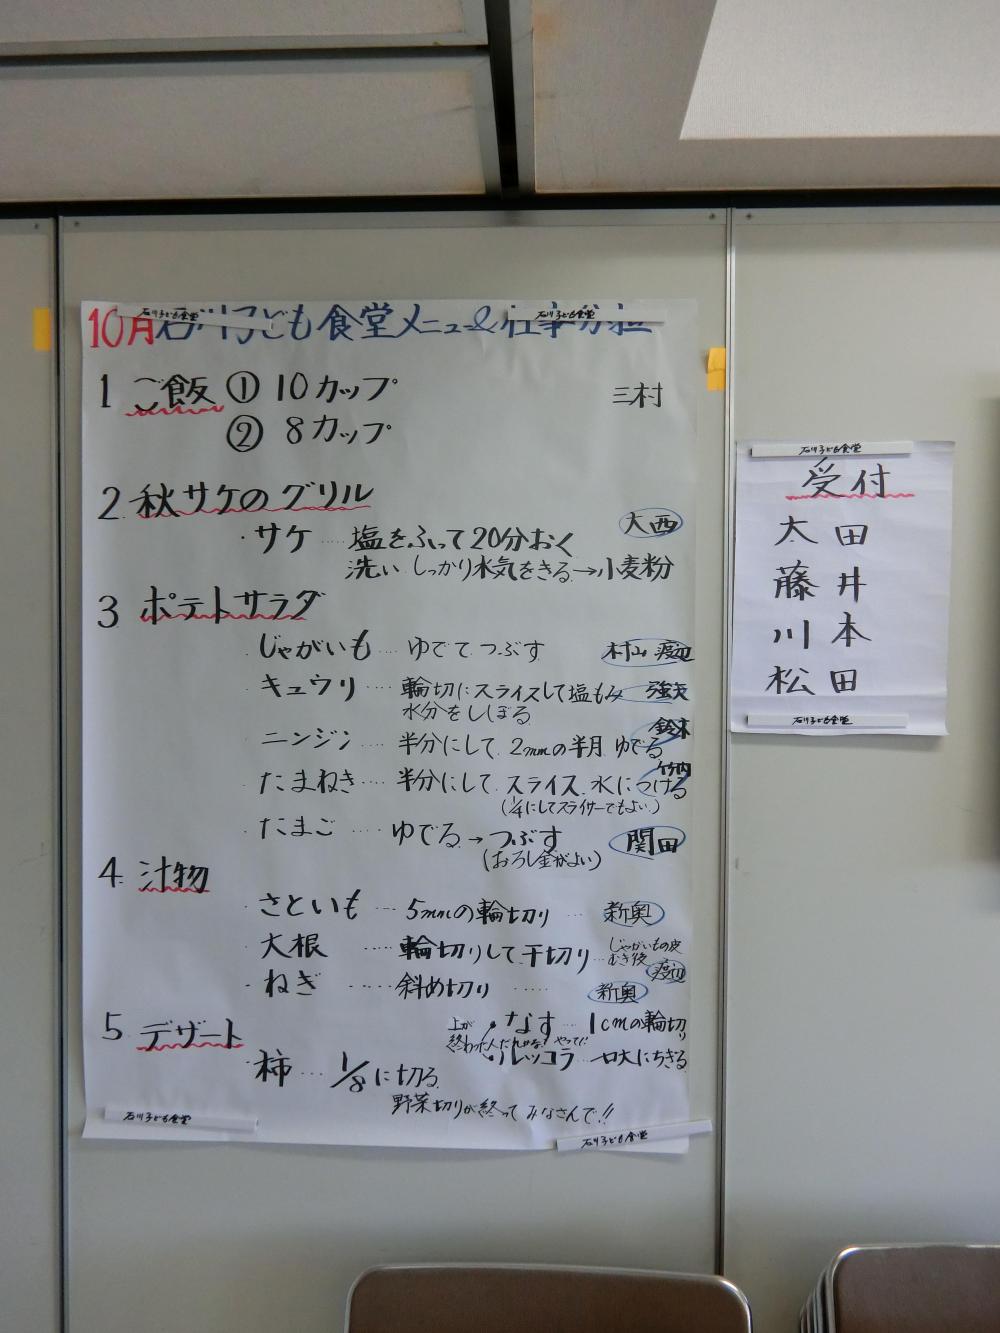 10月石川子ども食堂メニュー&仕事分担
石川子ども食堂
石川子ども食堂
1 ご飯 ① 10カップ 三村
② 8カップ
2 秋サケのグリル
・サケ …… 塩をふって20分おく 大西
洗い しっかり水気をきる→小麦粉
3 ポテトサラダ
・じゃがいも … ゆでてつぶす 村山 渡辺
・キュウリ … 輪切にスライスして塩もみ
水分をしぼる
・ニンジン … 半分にして 2mmの半月 ゆでる 鈴木
・たまねぎ … 半分にして スライス 水につける 竹内
(1/4にしてスライサーでもよい)
・たまご … ゆでる→つぶす 関田
(おろし金がよい)
4 汁物
・さといも … 5mmの輪切り … 新奥
・大根 …… 輪切りして千切り … じゃがいもの皮むき後 渡辺
・ねぎ …… 斜め切り …… 新奥
・なす … 1cmの輪切り
上が終わった人だれかな! やってに
・ルッコラ … 一口大にちぎる
5 デザート
・柿 … 1/8に切る
野菜切りが終ってみなさんで!!
石川子ども食堂
石川子ども食堂
石川子ども食堂
受付
太田
藤井
川本
松田
石川子ども食堂